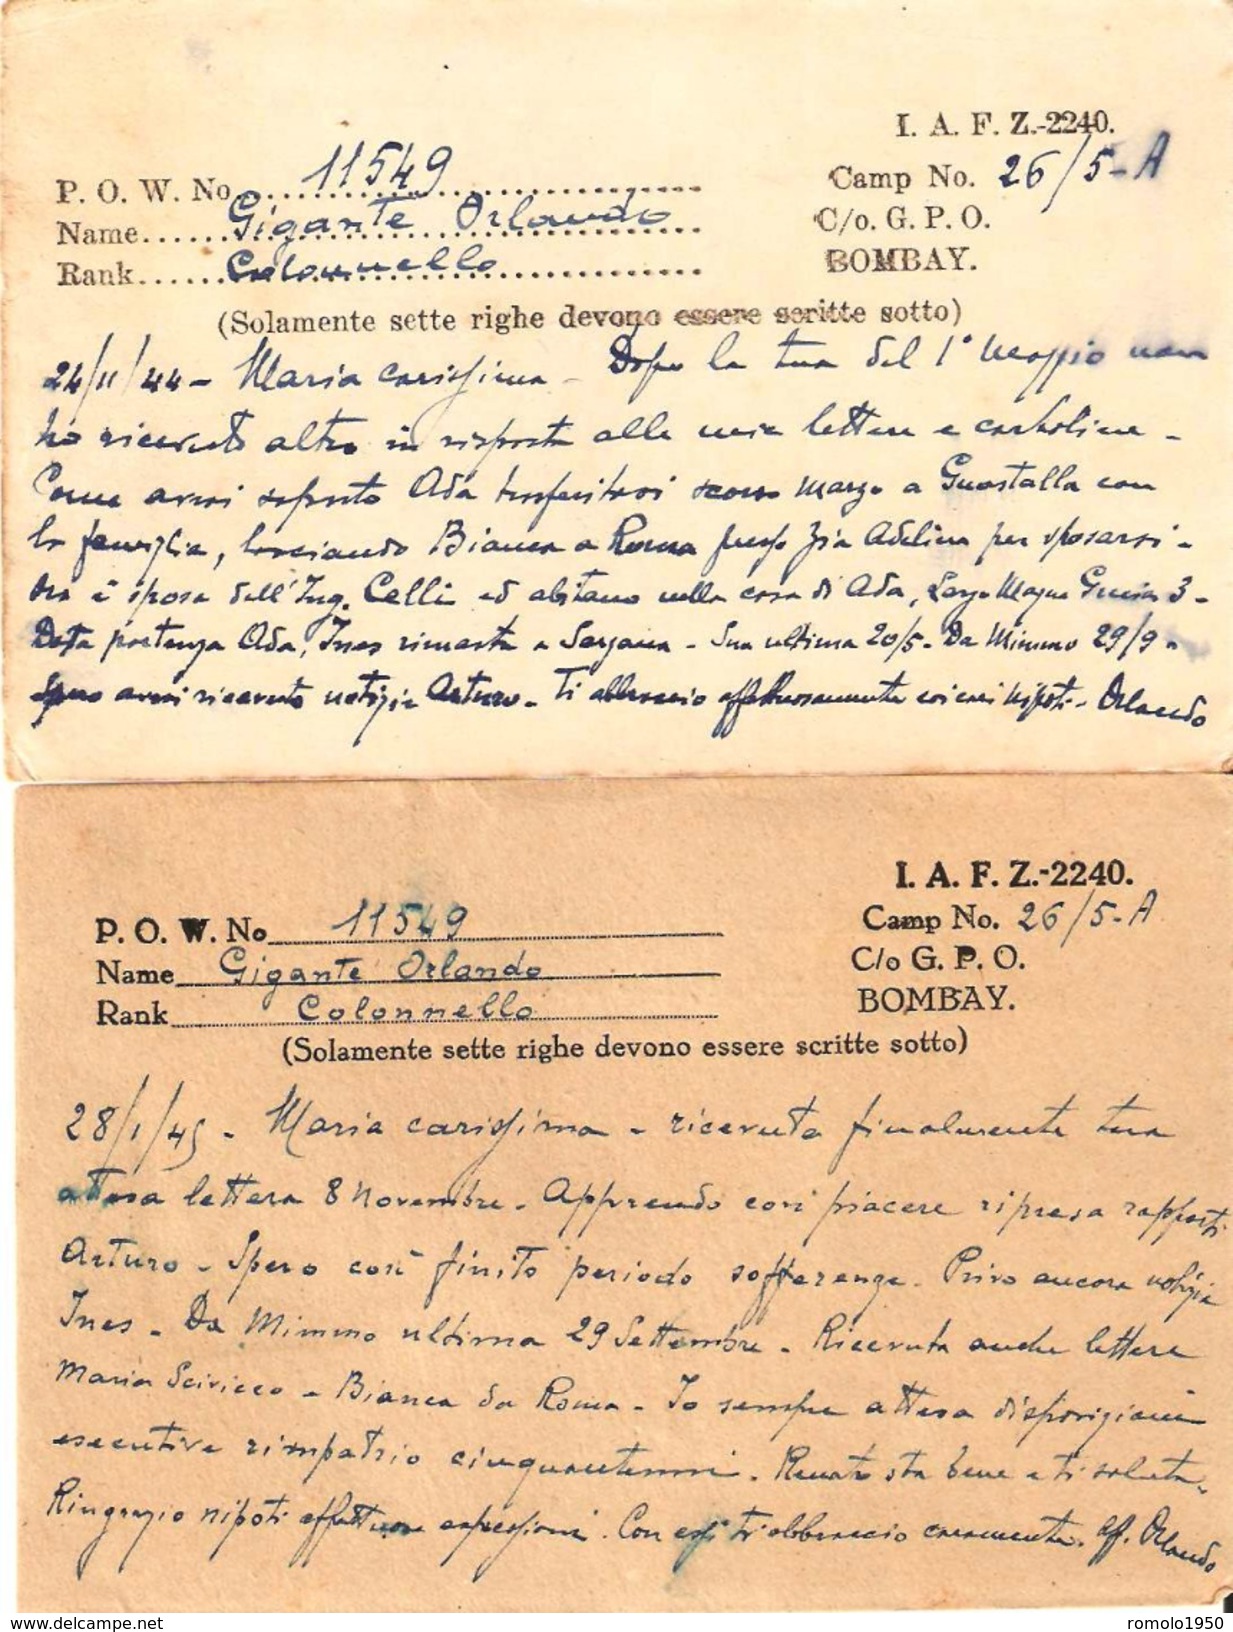 I. A. F. Z.-2240.
P. O. W. No 11549
Camp No. 26/5-A
Name Gigante Orlando
C/o. G. P. O.
Rank Colonnello
BOMBAY.
(Solamente sette righe devono essere scritte sotto)
24/11/44 - Maria carissima - Dopo la tua del 1° Maggio non
ho ricevuto altro in risposta alle mie lettere e cartoline -
Come avrai saputo Ada trasferitasi scorso marzo a Guastalla con
la famiglia, lasciando Bianca a Roma presso Zia Adelina per sposarsi -
Ora è sposa dell'Ing. Celli ed abitano nella casa di Ada, Largo Magna Grecia 3 -
Data partenza Ada, Ines rimasta a Sarzana - Sua ultima 20/5 - Da Mimmo 29/9 -
Spero avrai ricevuto notizie Arturo - Ti abbraccio affettuosamente coi cari nipoti - Orlando
I. A. F. Z.-2240.
P. O. W. No 11549
Camp No. 26/5-A
Name Gigante Orlando
C/o G. P. O.
Rank Colonnello
BOMBAY.
(Solamente sette righe devono essere scritte sotto)
28/1/45 - Maria carissima - ricevuta finalmente tua
attesa lettera 8 Novembre - Apprendo con piacere ripresa rapporti
Arturo - Spero così finito periodo sofferenze. Privo ancora notizie
Ines - Da Mimmo ultima 29 Settembre - Ricevuta anche lettere
Maria - Bianca da Roma - Io sempre attesa disposizioni
esecutive rimpatrio cinquantenni. Renato sta bene e ti saluta -
Ringrazio nipoti affettuose espressioni. Con essi ti abbraccio caramente. aff. Orlando
www.delcampe.net
romolo1950